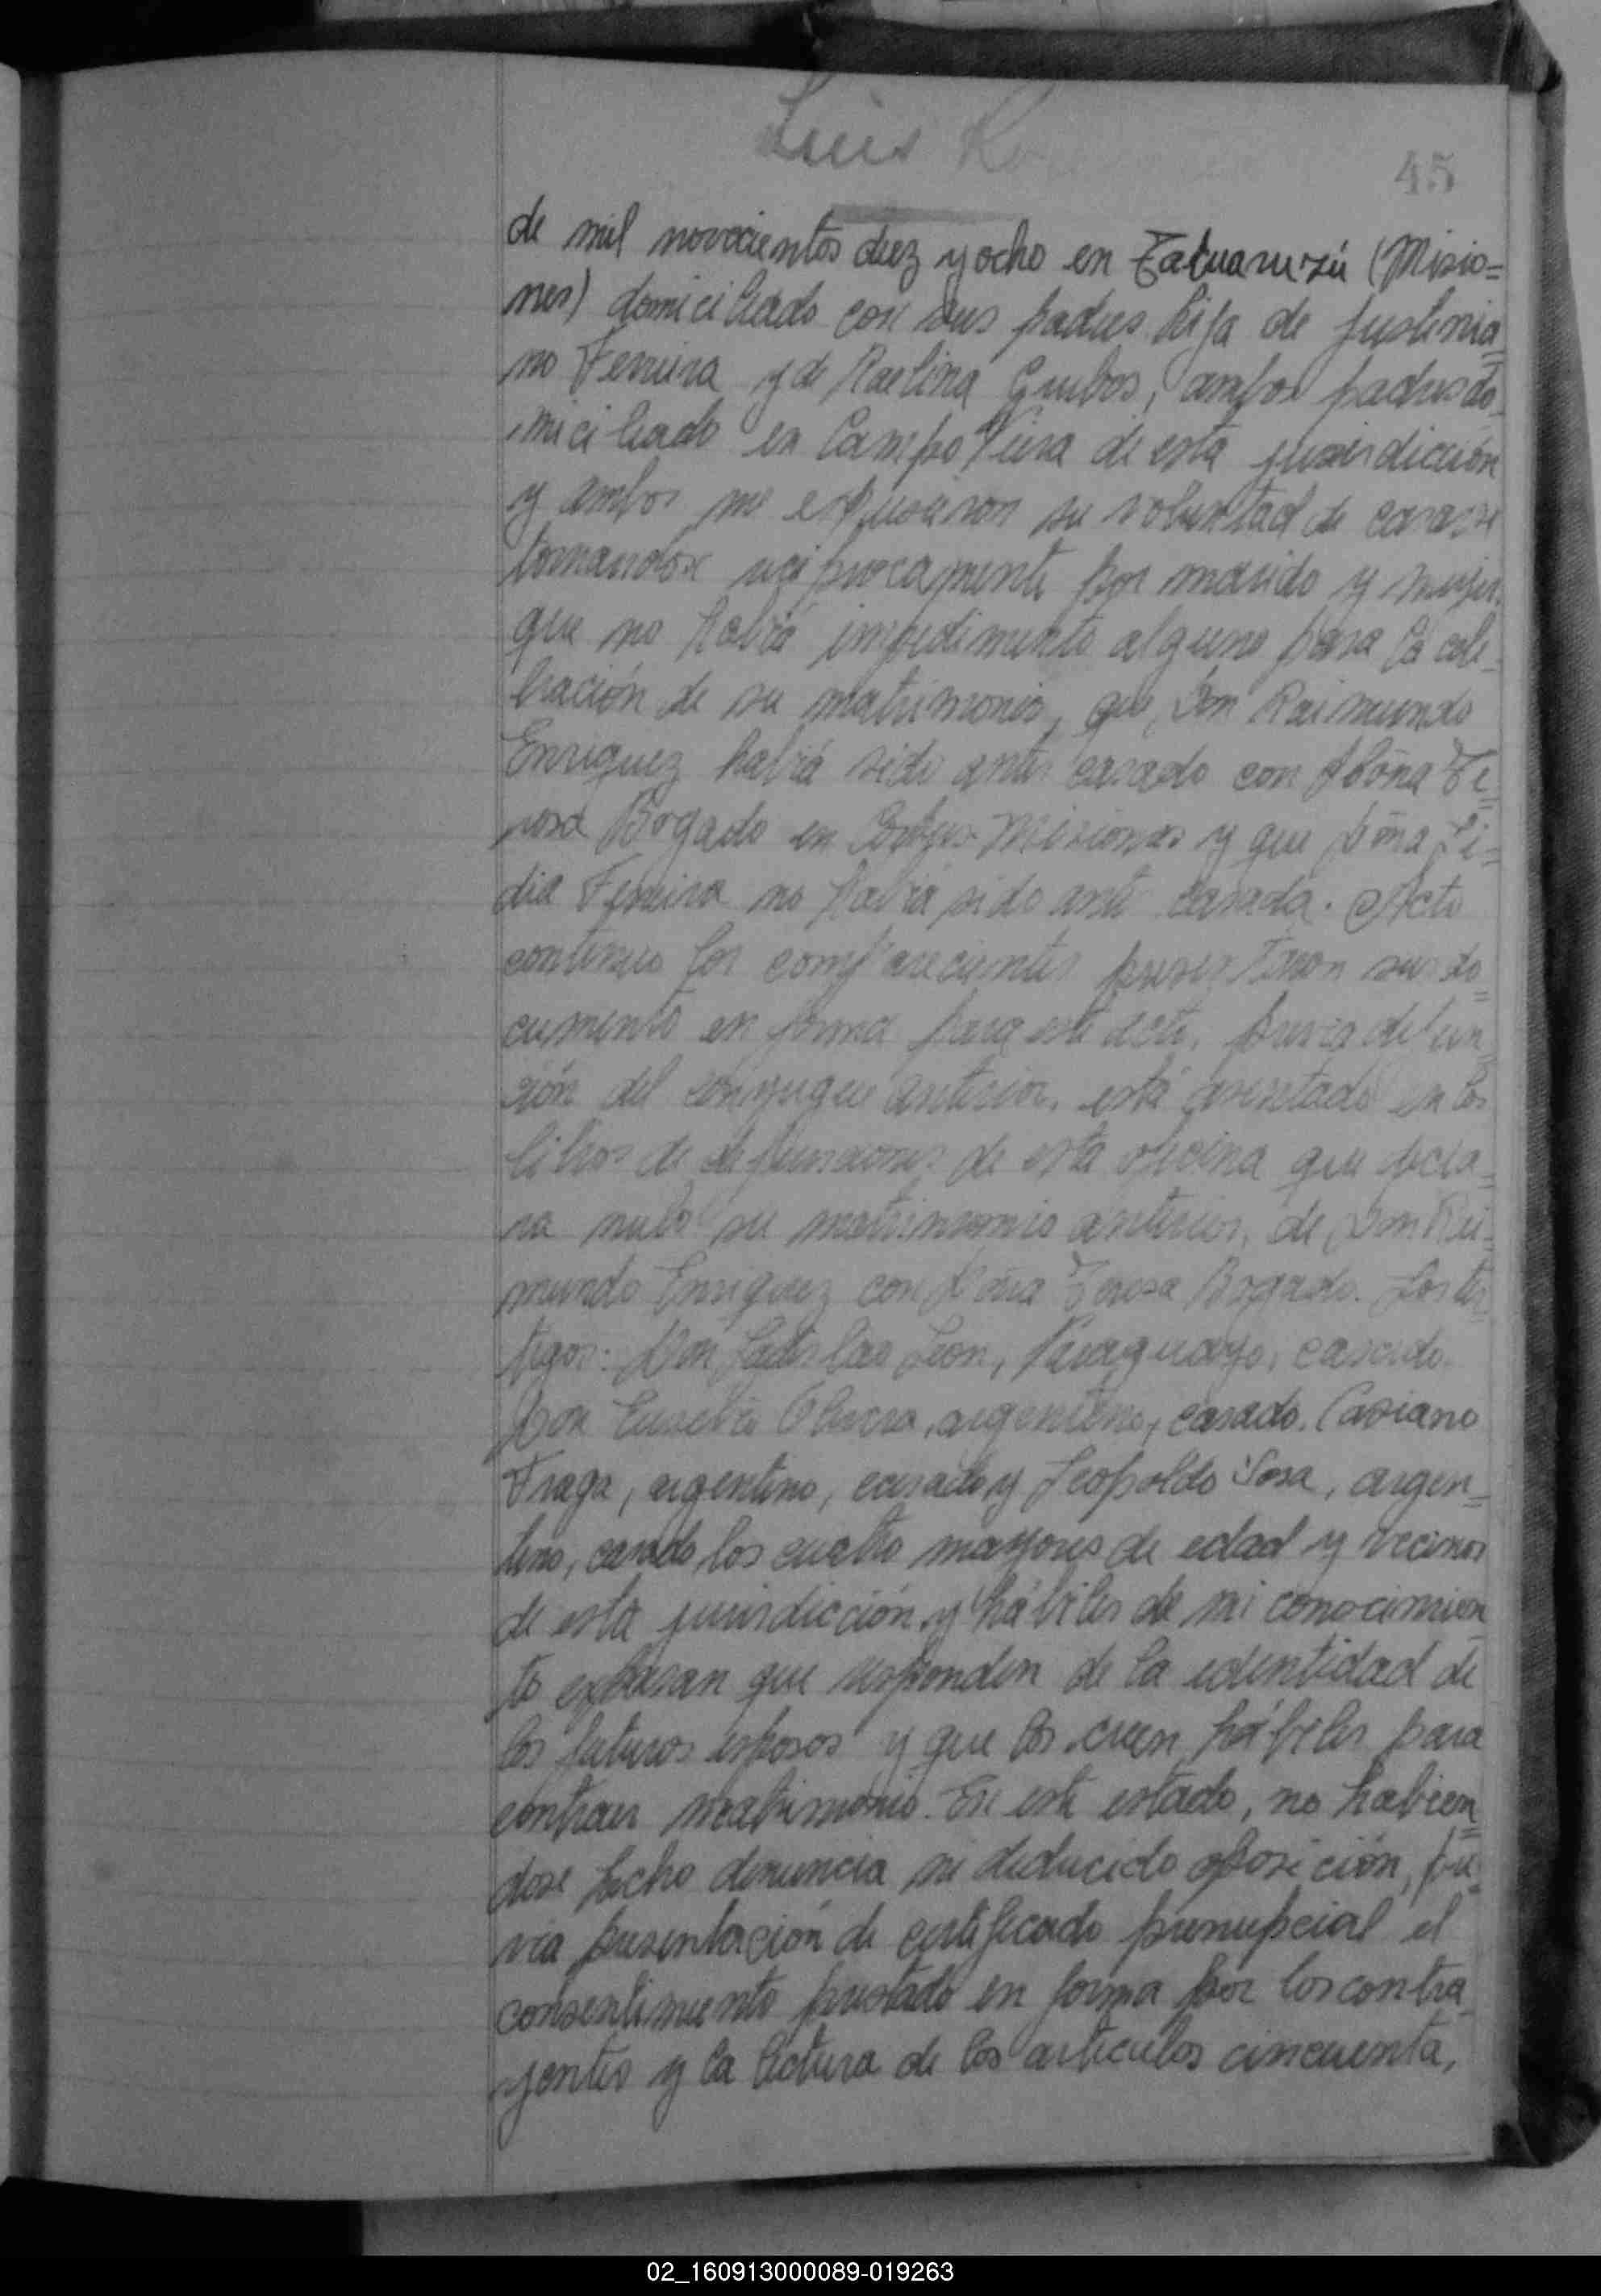 Luis
45
de mil novecientos diez y ocho en (Misio=
nes) domiciliado con sus padres hija de Justinia=
no Ferreira y de ambos padres do=
miciliado en Campo Viera de esta jurisdicción
y ambos me expusieron su voluntad de casarse
tomandose reciprocamente por marido y mujer.
que no había impedimento alguno para la cele=
bración de su matrimonio, que Don Raimundo
Enriquez había sido antes casado con Doña Te=
resa Bogado en Corpus Misiones y que Doña Li=
dia Ferreira no había sido antes casada. Acto
continuo los comparecientes presentaron sus do=
cumento en forma para este acto, defun
ción del conyugue anterior, está asentado en los
libros de defunciones de esta oficina que decla=
ra nulo su matrimonio anterior, de Don Rai=
mundo Enriquez con Doña Teresa Bogado. Los tes
tigos: Don Ladislao Leon, Paraguayo, casado.
Don Eusebio Olivera, argentino, casado. Casiano
Fraga, argentino, casado y Leopoldo Sosa, argen=
tino, casado, los cuatro mayores de edad y vecinos
de esta jurisdicción y hábiles de mi conocimien
to expresan que responden de la identidad de
los futuros esposos y que los creen hábiles para
contraer matrimonio. En este estado, no habien=
dose hecho denuncia ni deducido oposición, pre=
via presentación de certificado prenupcial el
consentimiento prestado en forma por los contra
yentes y la lectura de los articulos cincuenta,
02_160913000089-019263